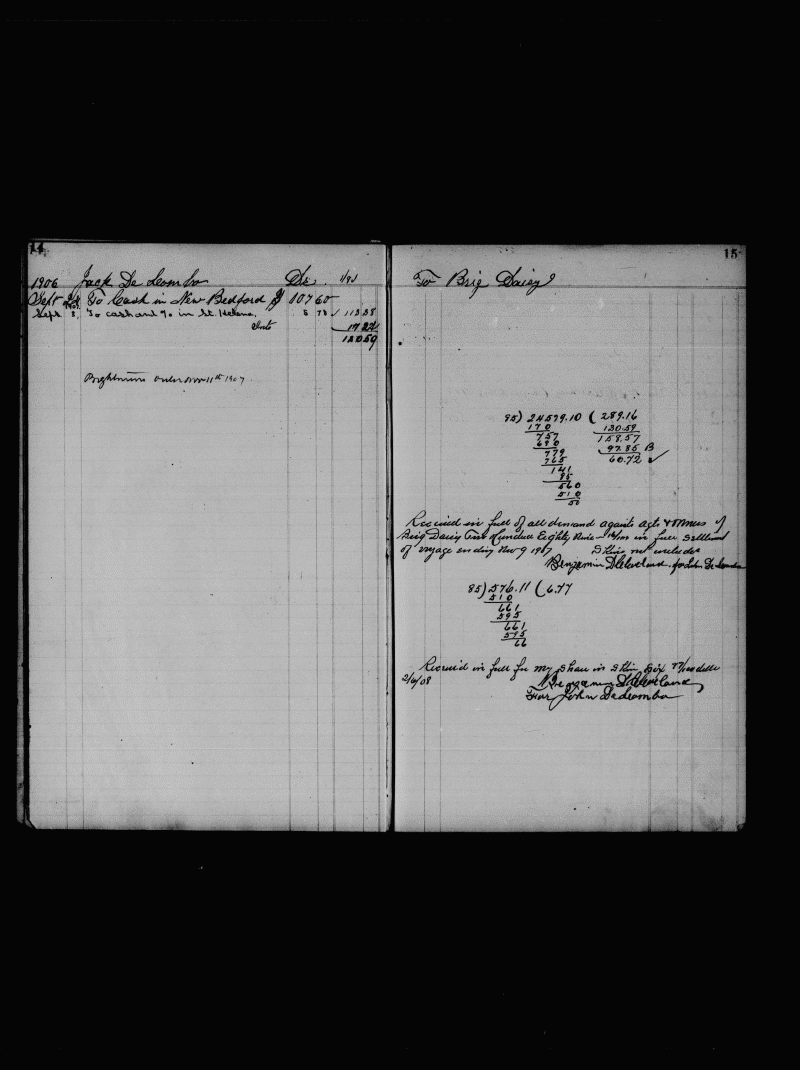 14
1906 Jack De Lomba Dr. 1/85
Sept 24 To Cash in New Bedford $ 107 60
1907
Sept. 3, To cash and % in St. Helena, 5 78 113 38
17 21
130 59
Brightmans order Nov 11th 1907
15
To Brig Daisy
85) 24579.10 ( 289.16
170 130.59
757 158.57
680 97.85 B
779 60.72 ✓
765
141
85
560
510
50
Received in full of all demand agents acts & owners of
Brig Daisy Two Hundred Eighty Nine 16/100 in full settlement
of voyage ending Nov 9 1907 Skins not included
Benjamin D Cleveland for John De Lomba
85) 576.11 ( 6.77
510
661
595
661
595
66
Received in full for my share in Skins Six 77/100 dolls
2/6/08 Benjamin D Cleveland
For John De Lomba